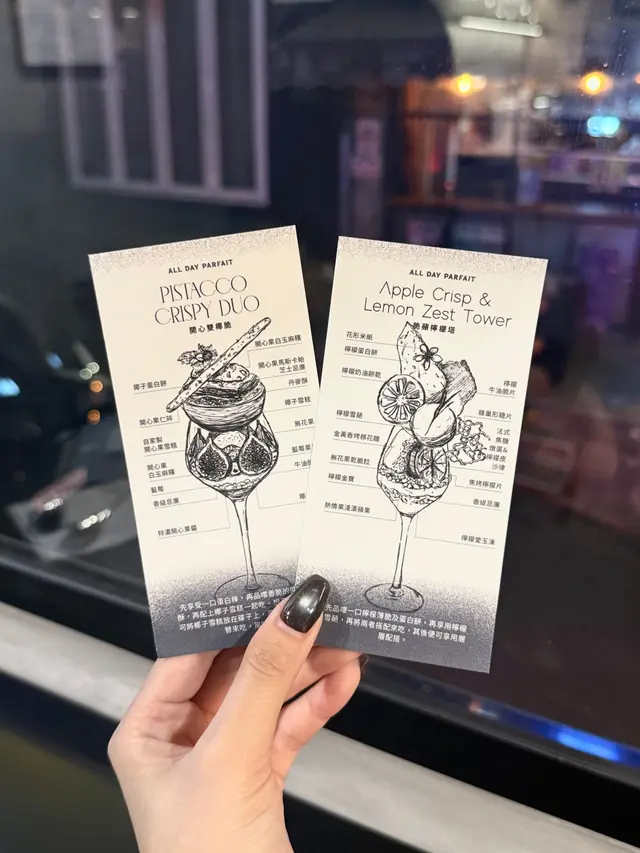 ALL DAY PARFAIT
PISTACCO
CRISPY DUO
開心雙椰脆
開心果白玉麻糬
開心果馬斯卡帕
芝士忌廉
丹麥酥
椰子雪糕
無花果
藍莓果
牛油
椰子蛋白餅
開心果仁碎
自家製
開心果雪糕
開心果
白玉麻糬
藍莓
香緹忌廉
特濃開心果醬
先享受一口蛋白棒，再品嚐香脆的
酥，再配上椰子雪糕一起吃。
可將椰子雪糕放在碟子上，
替來吃，
ALL DAY PARFAIT
Apple Crisp &
Lemon Zest Tower
脆蘋檸檬塔
花形米紙
檸檬蛋白餅
檸檬奶油餅乾
檸檬雪葩
金黃香烤棉花糖
無花果乾脆粒
檸檬金寶
熱情果淺漬蘋果
檸檬
牛油脆片
蜂巢形糖片
法式
焦糖
燉蛋&
檸檬皮
沙律
焦烤檸檬片
香緹忌廉
檸檬愛玉凍
先品嚐一口檸檬薄脆及蛋白餅，再享用檸檬
雪葩，再將兩者搭配來吃，其後便可享用層
層配搭。